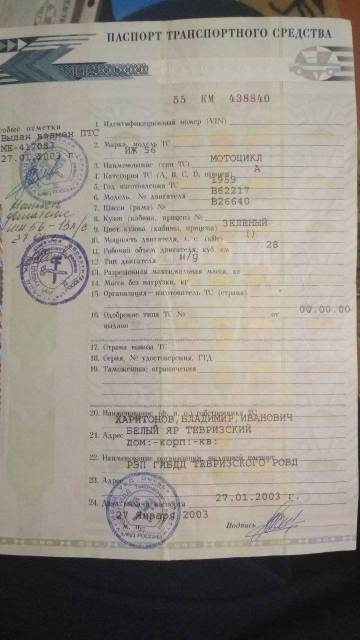 ПАСПОРТ ТРАНСПОРТНОГО СРЕДСТВА
55 КМ 438840
1. Идентификационный номер (VIN)
Выдан взамен ПТС
МЕ-417083
27.01.2003 г.
2. Марка, модель ТС ИЖ 56
3. Наименование (тип ТС) МОТОЦИКЛ
4. Категория ТС (A, B, C, D, прицеп) А
5. Год изготовления ТС 1959
6. Модель, № двигателя В62217
7. Шасси (рама) № В26640
8. Кузов (кабина, прицеп) №
9. Цвет кузова (кабины, прицепа) ЗЕЛЕНЫЙ
10. Мощность двигателя, л. с. (кВт) ()
11. Рабочий объем двигателя, куб. см 28
12. Тип двигателя н/у
13. Разрешенная максимальная масса, кг
14. Масса без нагрузки, кг
15. Организация-изготовитель ТС (страна)
16. Одобрение типа ТС № от 00.00.00
выдано
17. Страна вывоза ТС
18. Серия, № удостоверения, ГТД
19. Таможенные ограничения
20. Наименование (ф. и. о.) собственника ТС
ХАРИТОНОВ, ВЛАДИМИР, ИВАНОВИЧ
21. Адрес БЕЛЫЙ ЯР ТЕВРИЗСКИЙ
ДОМ:-корп:-кв:
22. Наименование организации, выдавшей паспорт
РЭП ГИБДД ТЕВРИЗСКОГО РОВД
23. Адрес
24. Дата выдачи паспорта 27.01.2003 г.
27 Января 2003
М. П.
Подпись